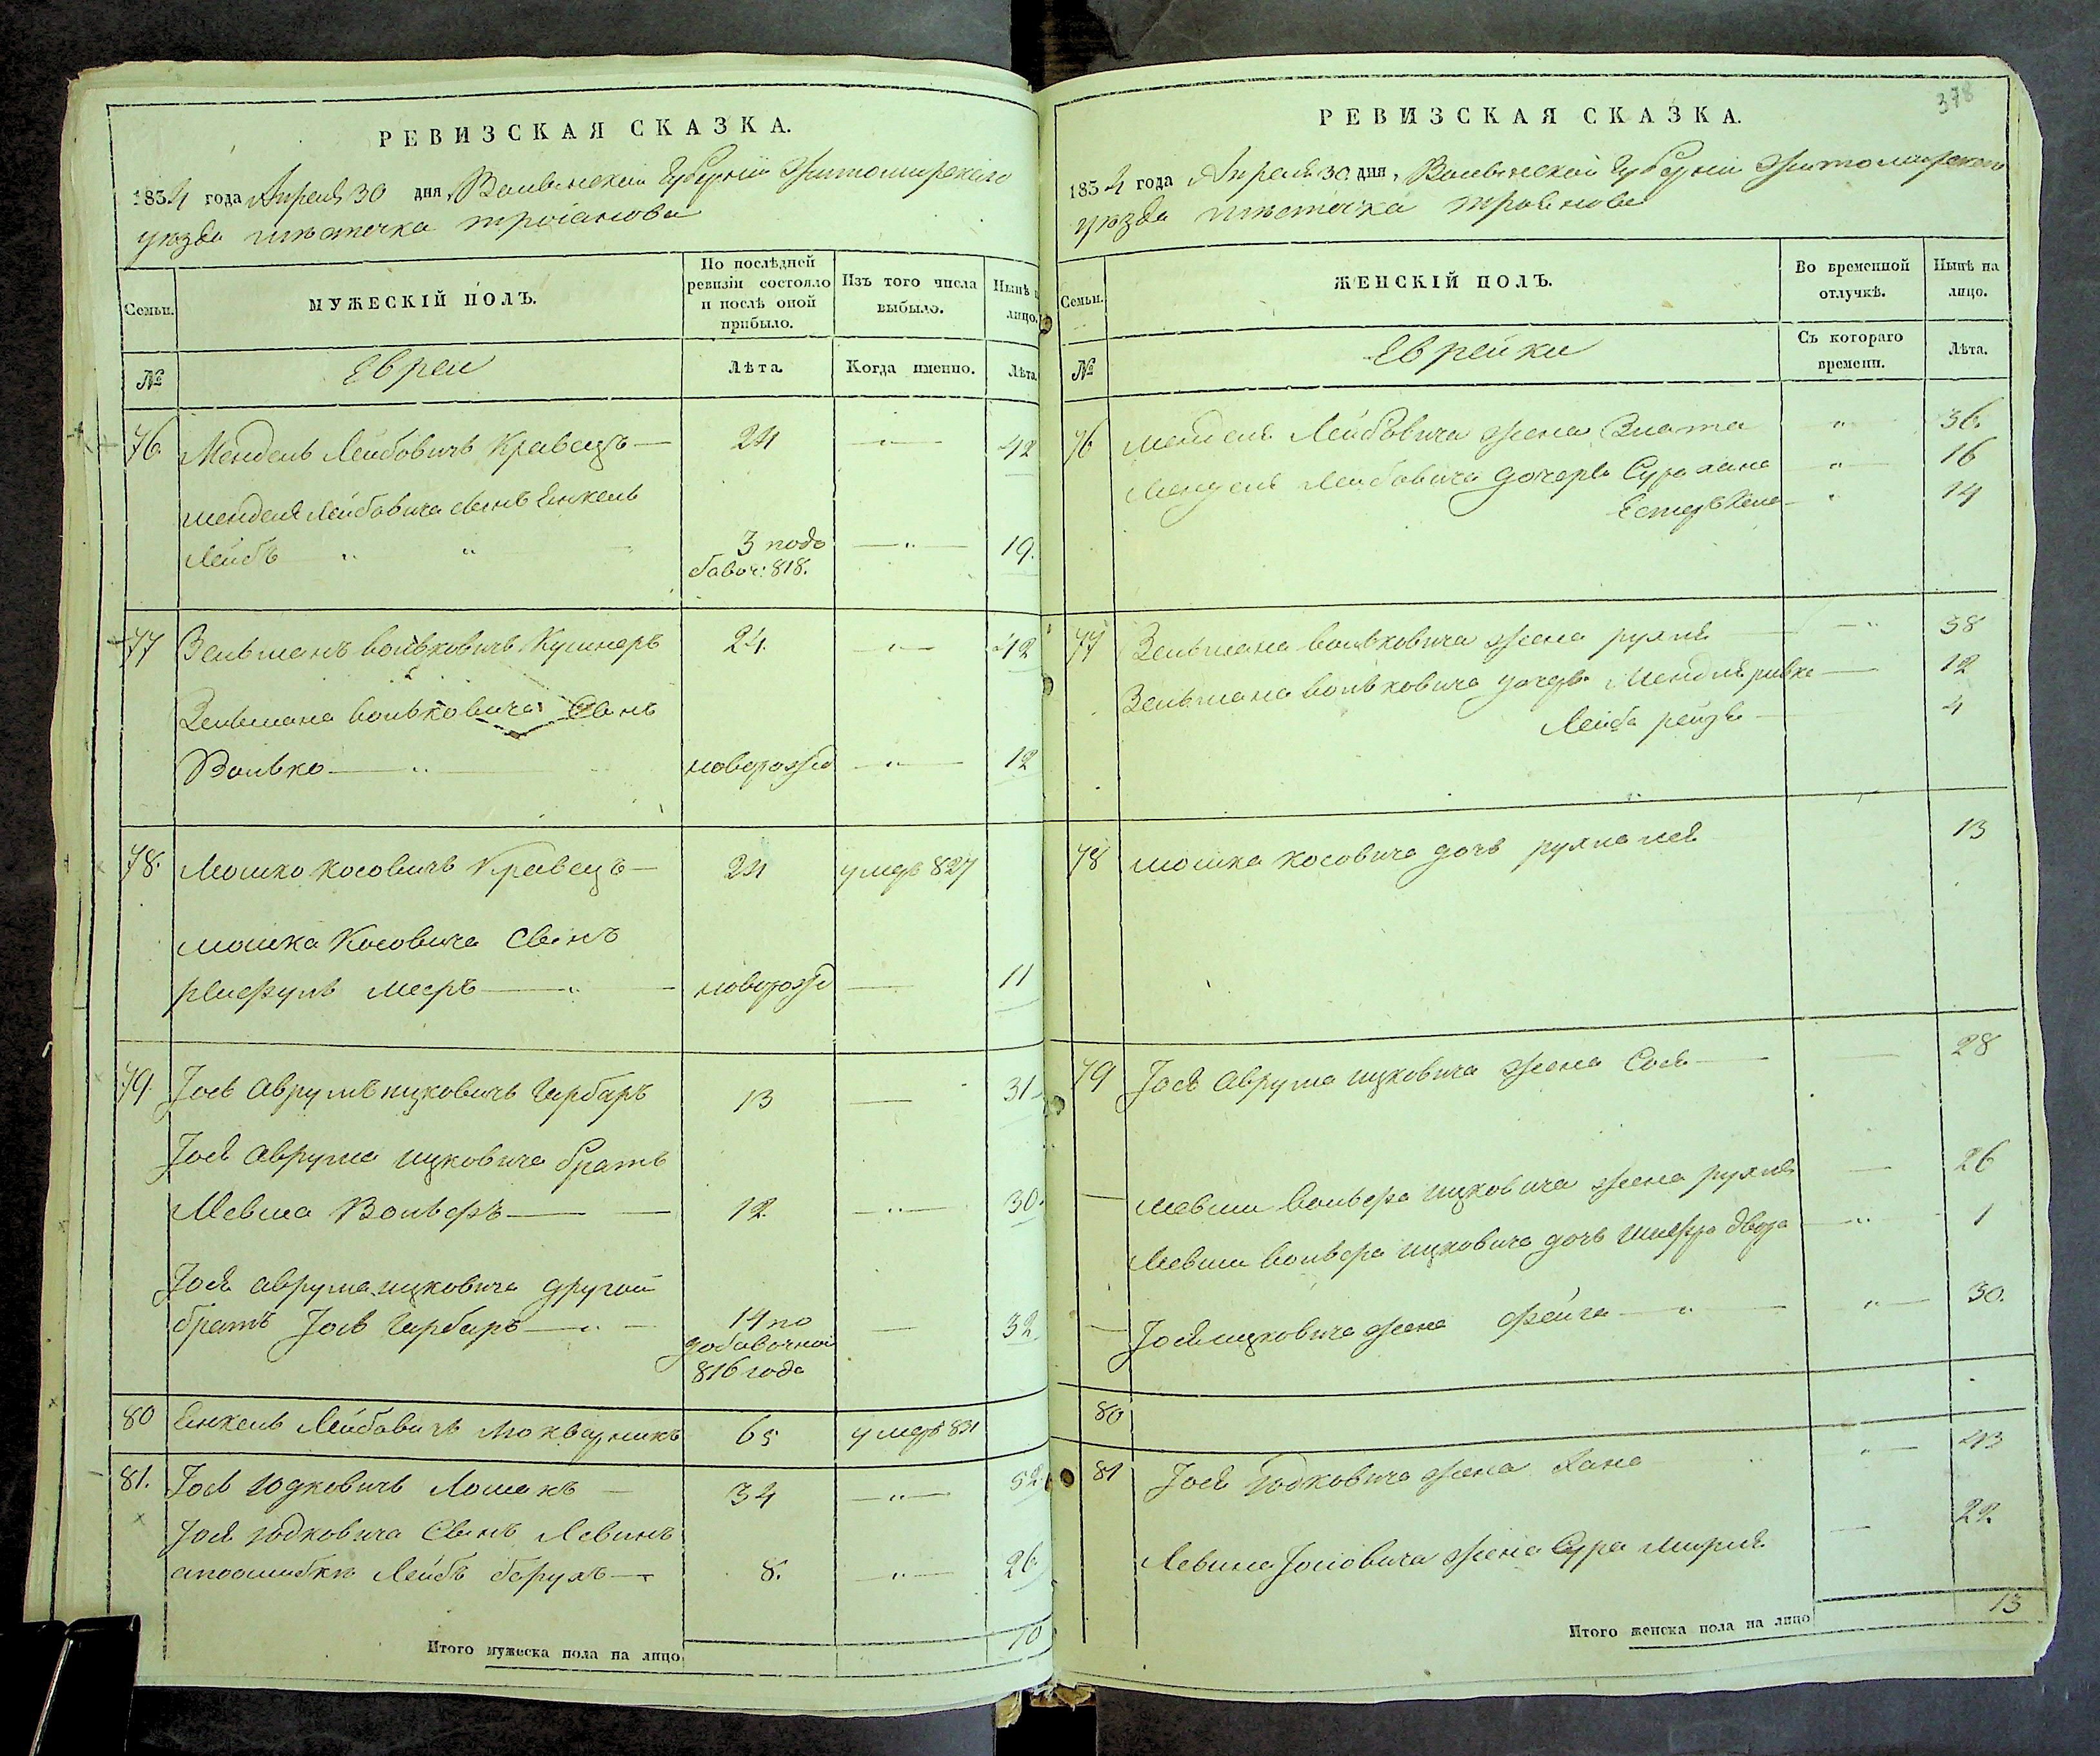 РЕВИЗСКАЯ СКАЗКА.
1834 года Апреля 30 дня, Волынской Губерніи Житомирскаго
уѣзда мѣстечка Троіанова
Семьи.
МУЖЕСКІЙ ПОЛЪ.
По послѣдней ревизіи состояло и послѣ оной прибыло.
Изъ того числа выбыло.
Нынѣ лицо.
№
Евреи
Лѣта.
Когда именно.
Лѣта.
76. Мендель Лейбовичъ Кравецъ — 24 — 42
Менделя Лейбовича сынъ Енкель
Лейбъ 3 по до — 19.
бавоч: 818.
77 Зельманъ Волѣковичъ Кушнеръ 24. — 42
Зельмана Волѣковича Сынъ
Волѣко — новорожд — 12
78. Мошко Косовичъ Кравецъ — 24 умеръ 827
Мошка Косовича Сынъ
Меръ — новорожд — 11
79. Іось Аврумъ Ицковичъ Гарбаръ 13 — 31
Іося Аврума Ицковича братъ
Мевша Вольфъ — 12. — 30.
Іося Аврума Ицковича другой
братъ Іось Гарбаръ — 14 по — 32
добавочной
816 года
80 Енкель Лейбовичъ 65 умеръ 831
81. Іось Юдковичъ Лошакъ — 34 — 52
Іося Юдковича Сынъ Левинъ
апоошибкѣ Лейбъ Борухъ — 8. — 26
Итого мужеска пола на лицо 10
378
РЕВИЗСКАЯ СКАЗКА.
1834 года Апреля 30 дня, Волынской Губерніи Житомирскаго
уѣзда мѣстечка Троянова
Семьи.
ЖЕНСКІЙ ПОЛЪ.
Во временной отлучкѣ.
Нынѣ на лицо.
№
Еврейки
Съ котораго времени.
Лѣта.
76 Менделя Лейбовича жена Злота " 36.
Менделя Лейбовича дочери Сура Хана " 16
Естеръ " 14
77 Зельмана Волѣковича жена Рухля — 38
Зельмана Волѣковича дочери Мендля Ривка — 12
Лейба Рейзя — 4
78 Мошка Косовича дочь Рухля Лея 13
79 Іося Аврума Ицковича жена Сося — 28
Мевши Вольфа Ицковича жена Рухля — 26
Мевши Вольфа Ицковича дочь Шифра Двора " 1
Іося Ицковича жена Фейга " 30.
80
81 Іося Юдковича жена Хана " 43
Левина Іосіовича жена Сура Мирля — 22.
Итого женска пола на лицо 13